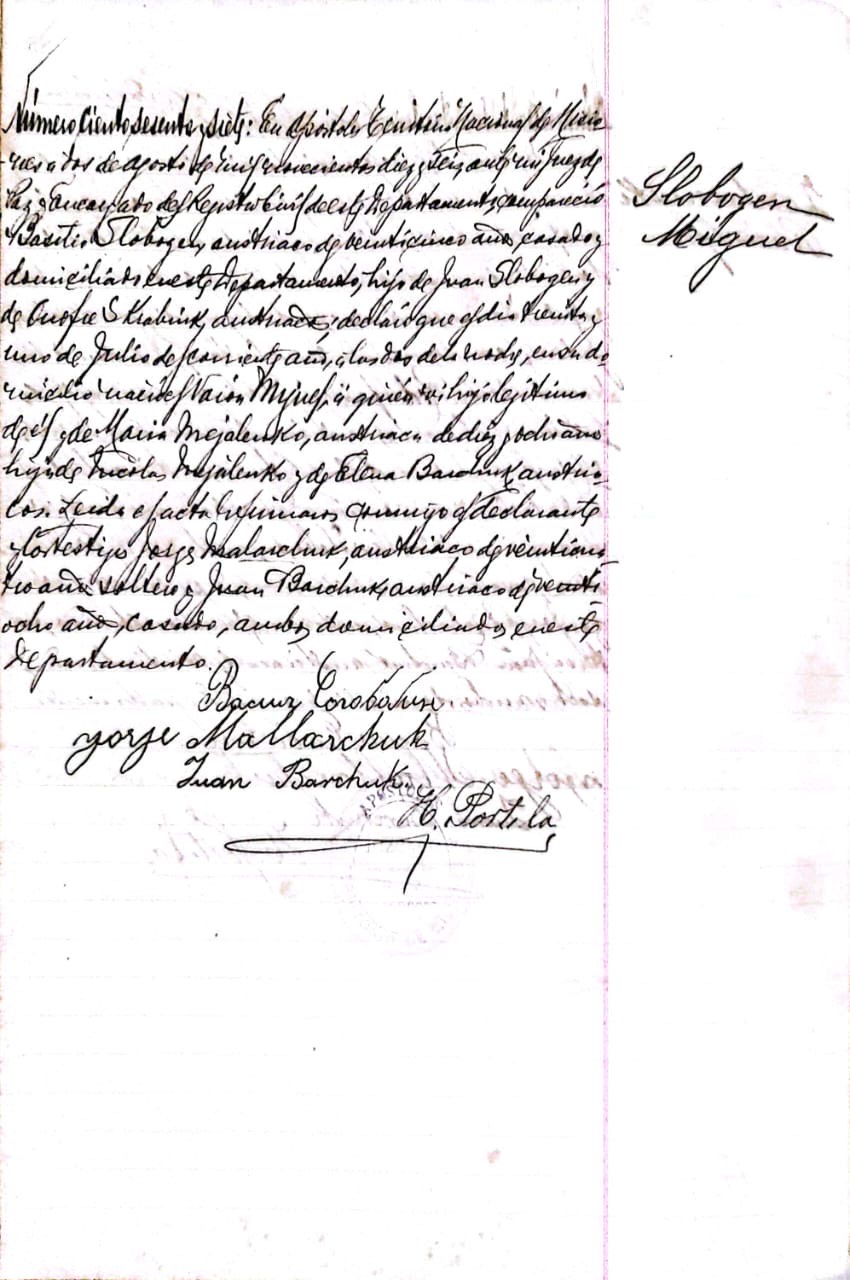 Número ciento sesenta y siete: En Apóstoles Territorio Nacional de Misio-
nes a dos de Agosto de mil novecientos diez y seis ante mi Juez de
Paz y Encargado del Registro Civil de este Departamento, compareció
Basilio Slobogen, austriaco de veinticinco años, casado y
domiciliado en este Departamento, hijo de Juan Slobogen y
de Onofre Skrabiuk, austriacos; declaró que el dia treinta y
uno de Julio del corriente año, a las dos de la noche, en su do-
micilio nació el varón Miguel, a quién vi hijo legitimo
de él y de Maria Mejalenko, austriaca de diez y ocho años
hija de Nicolas Mejalenko y de Elena Barchuk, austria-
cos. Leida el acta la firmaron conmigo el declarante
y los testigos Jorge Malarchuk, austriaco de veinticua-
tro años soltero y Juan Barchuk, austriaco de veinti-
ocho años, casado, ambos domiciliados en este
Departamento.
Slobogen
Miguel
Yorje Mallarchuk
Juan Barchuk
H. Portela
APOSTOLES